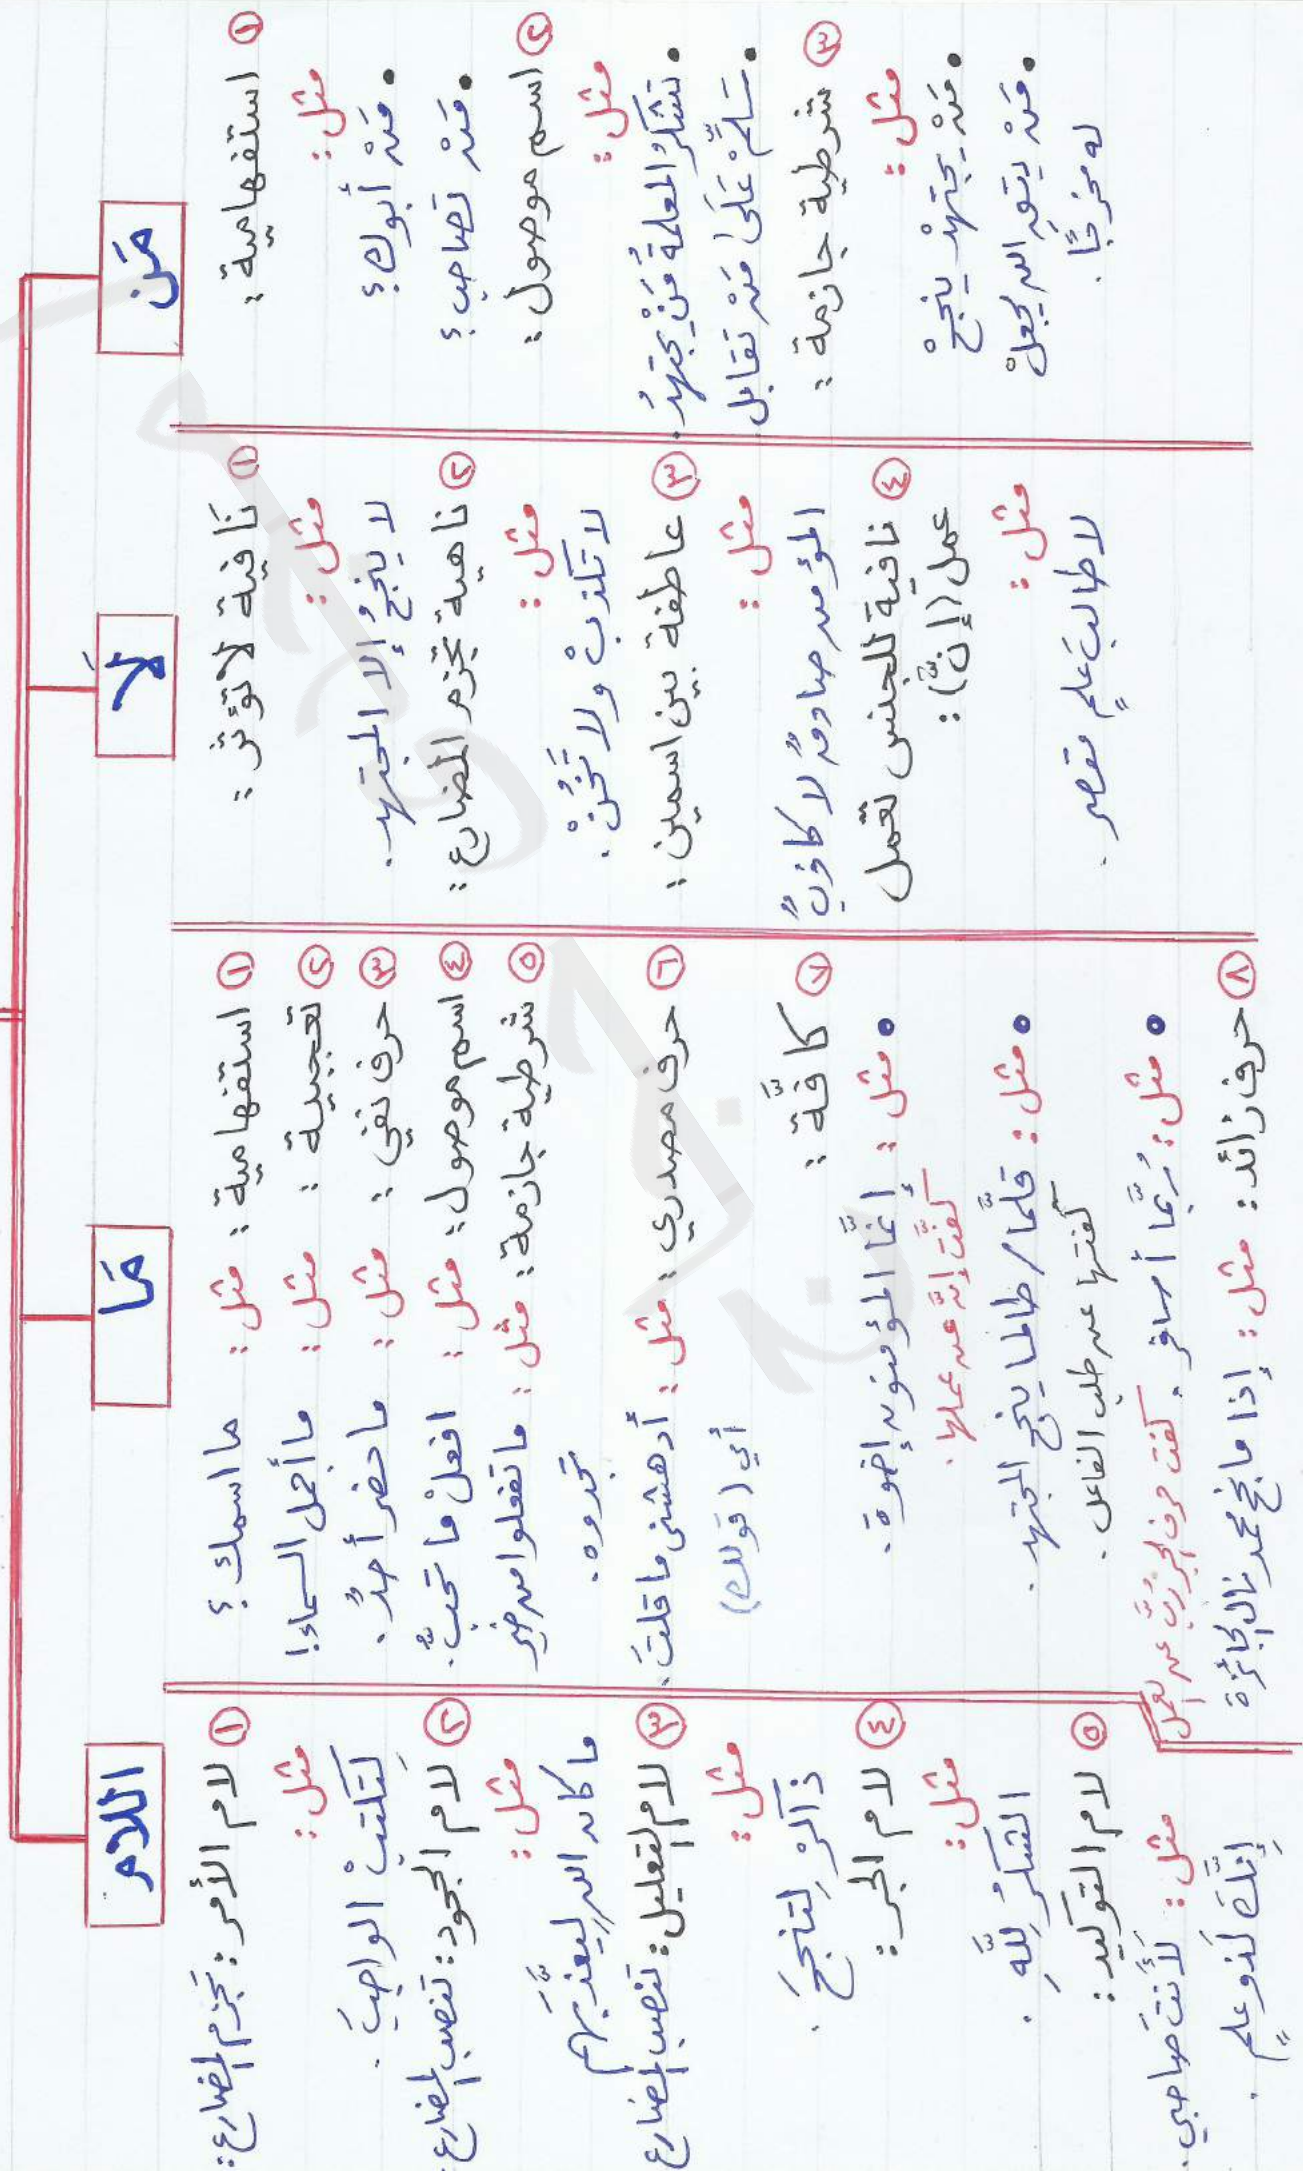 مَن
① استفهامية :
مثل :
• مَنْ أبوك ؟
• مَنْ تصاحب ؟
② اسم موصول :
مثل :
• تشكرُ المعلمةُ مَنْ يجتهدُ .
• سَلِّمْ عَلَى مَنْ تقابل .
③ شرطية جازمة :
مثل :
• مَنْ يجتهدْ ينجحْ
• مَنْ يتقِ الله يجعلْ
له مخرجًا .
لَا
① نَافية لا تؤثر :
مثل :
لا ينجحُ إلا المجتهد .
② ناهية تجزم المضارع :
مثل :
لا تكذبْ ولا تَخُنْ .
③ عاطفة بين اسمين :
مثل :
المؤمن صادقٌ لا كاذبٌ
④ نافية للجنس تعمل
عمل (إنَّ) :
مثل :
لا طالبَ علمٍ مقصر .
مَا
① استفهامية : مثل : ما اسمك ؟
② تعجبية : مثل : ما أجمل السماء !
③ حرف نفي : مثل : ما حضر أحدٌ .
④ اسم موصول : مثل : افعلْ ما تحبُّ .
⑤ شرطية جازمة : مثل : ما تفعلوا من خير
تجدوه .
⑥ حرف مصدري : مثل : أدهشني ما قلتَ .
أي (قولك)
⑦ كافَّة :
• مثل : إنَّما المؤمنون إخوة .
كفَّت إنَّ عن عملها .
• مثل : قلَّما / طالما ينجح المجتهد .
كفتها عن طلب الفاعل .
• مثل : رُبَّما أسافر . كفت حرف الجر رُبَّ عن العمل
⑧ حرف زائد : مثل : إذا ما نجح محمد نال الجائزة
اللام
① لام الأمر : تجزم المضارع :
مثل :
لِتكتبْ الواجبَ .
② لام الجحود : تنصب المضارع .
مثل :
ما كان الله ليعذِّبَهم
③ لام التعليل : تنصب المضارع
مثل :
ذاكرْ لِتنجحَ .
④ لام الجر :
مثل :
الشكرُ للَّهِ .
⑤ لام التوكيد :
مثل : لَأَنتَ صاحبي .
إنَّكَ لَذو علمٍ .